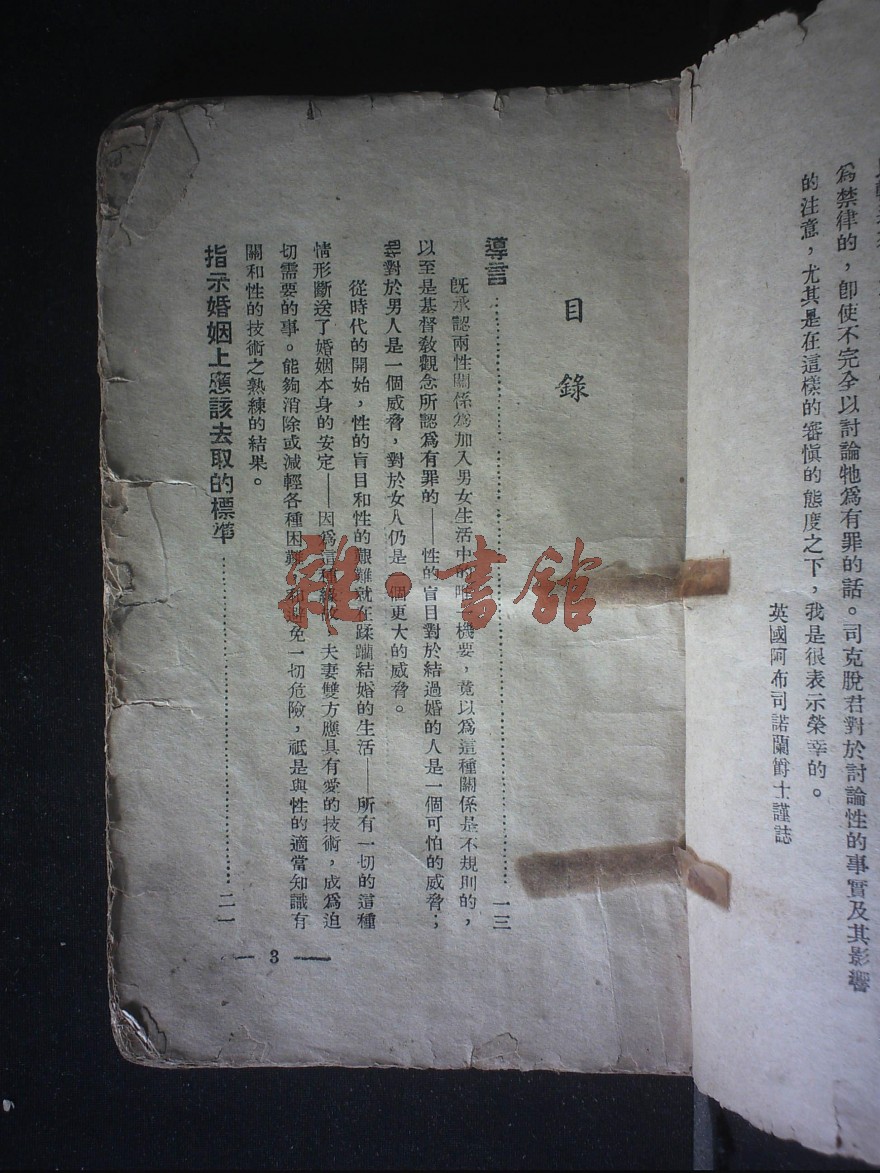 為禁律的，卽使不完全以討論牠爲有罪的話。司克脫君對於討論性的事實及其影響
的注意，尤其是在這樣的審慎的態度之下，我是很表示榮幸的。
英國阿布司諾蘭爵士謹誌
目錄
導言……一三
旣承認兩性關係爲加入男女生活中的唯一機要，竟以爲這種關係是不規則的，
以至是基督敎觀念所認爲有罪的——性的盲目對於結過婚的人是一個可怕的威脅；
對於男人是一個威脅，對於女人仍是一個更大的威脅。
從時代的開始，性的盲目和性的艱難就在蹂躪結婚的生活——所有一切的這種
情形斷送了婚姻本身的安定——因爲這種緣故，夫妻雙方應具有愛的技術，成爲迫
切需要的事。能夠消除或減輕各種困難，和避免一切危險，祇是與性的適當知識有
關和性的技術之熟練的結果。
指示婚姻上應該去取的標準……二一
— 3 —
雜·書館